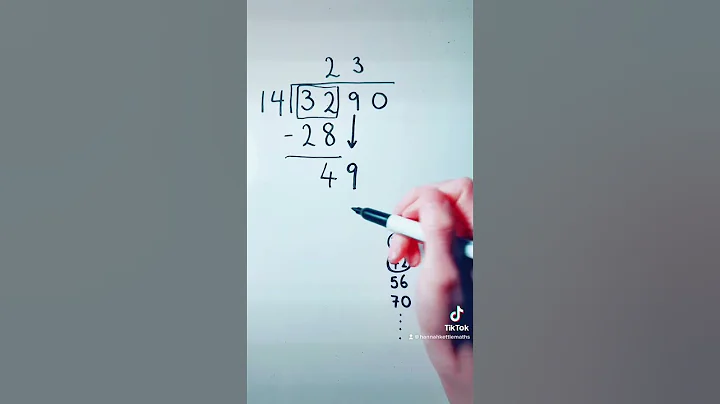 2 3
14 3290
- 28
49
42
56
70
TikTok
@hannahkettlemaths